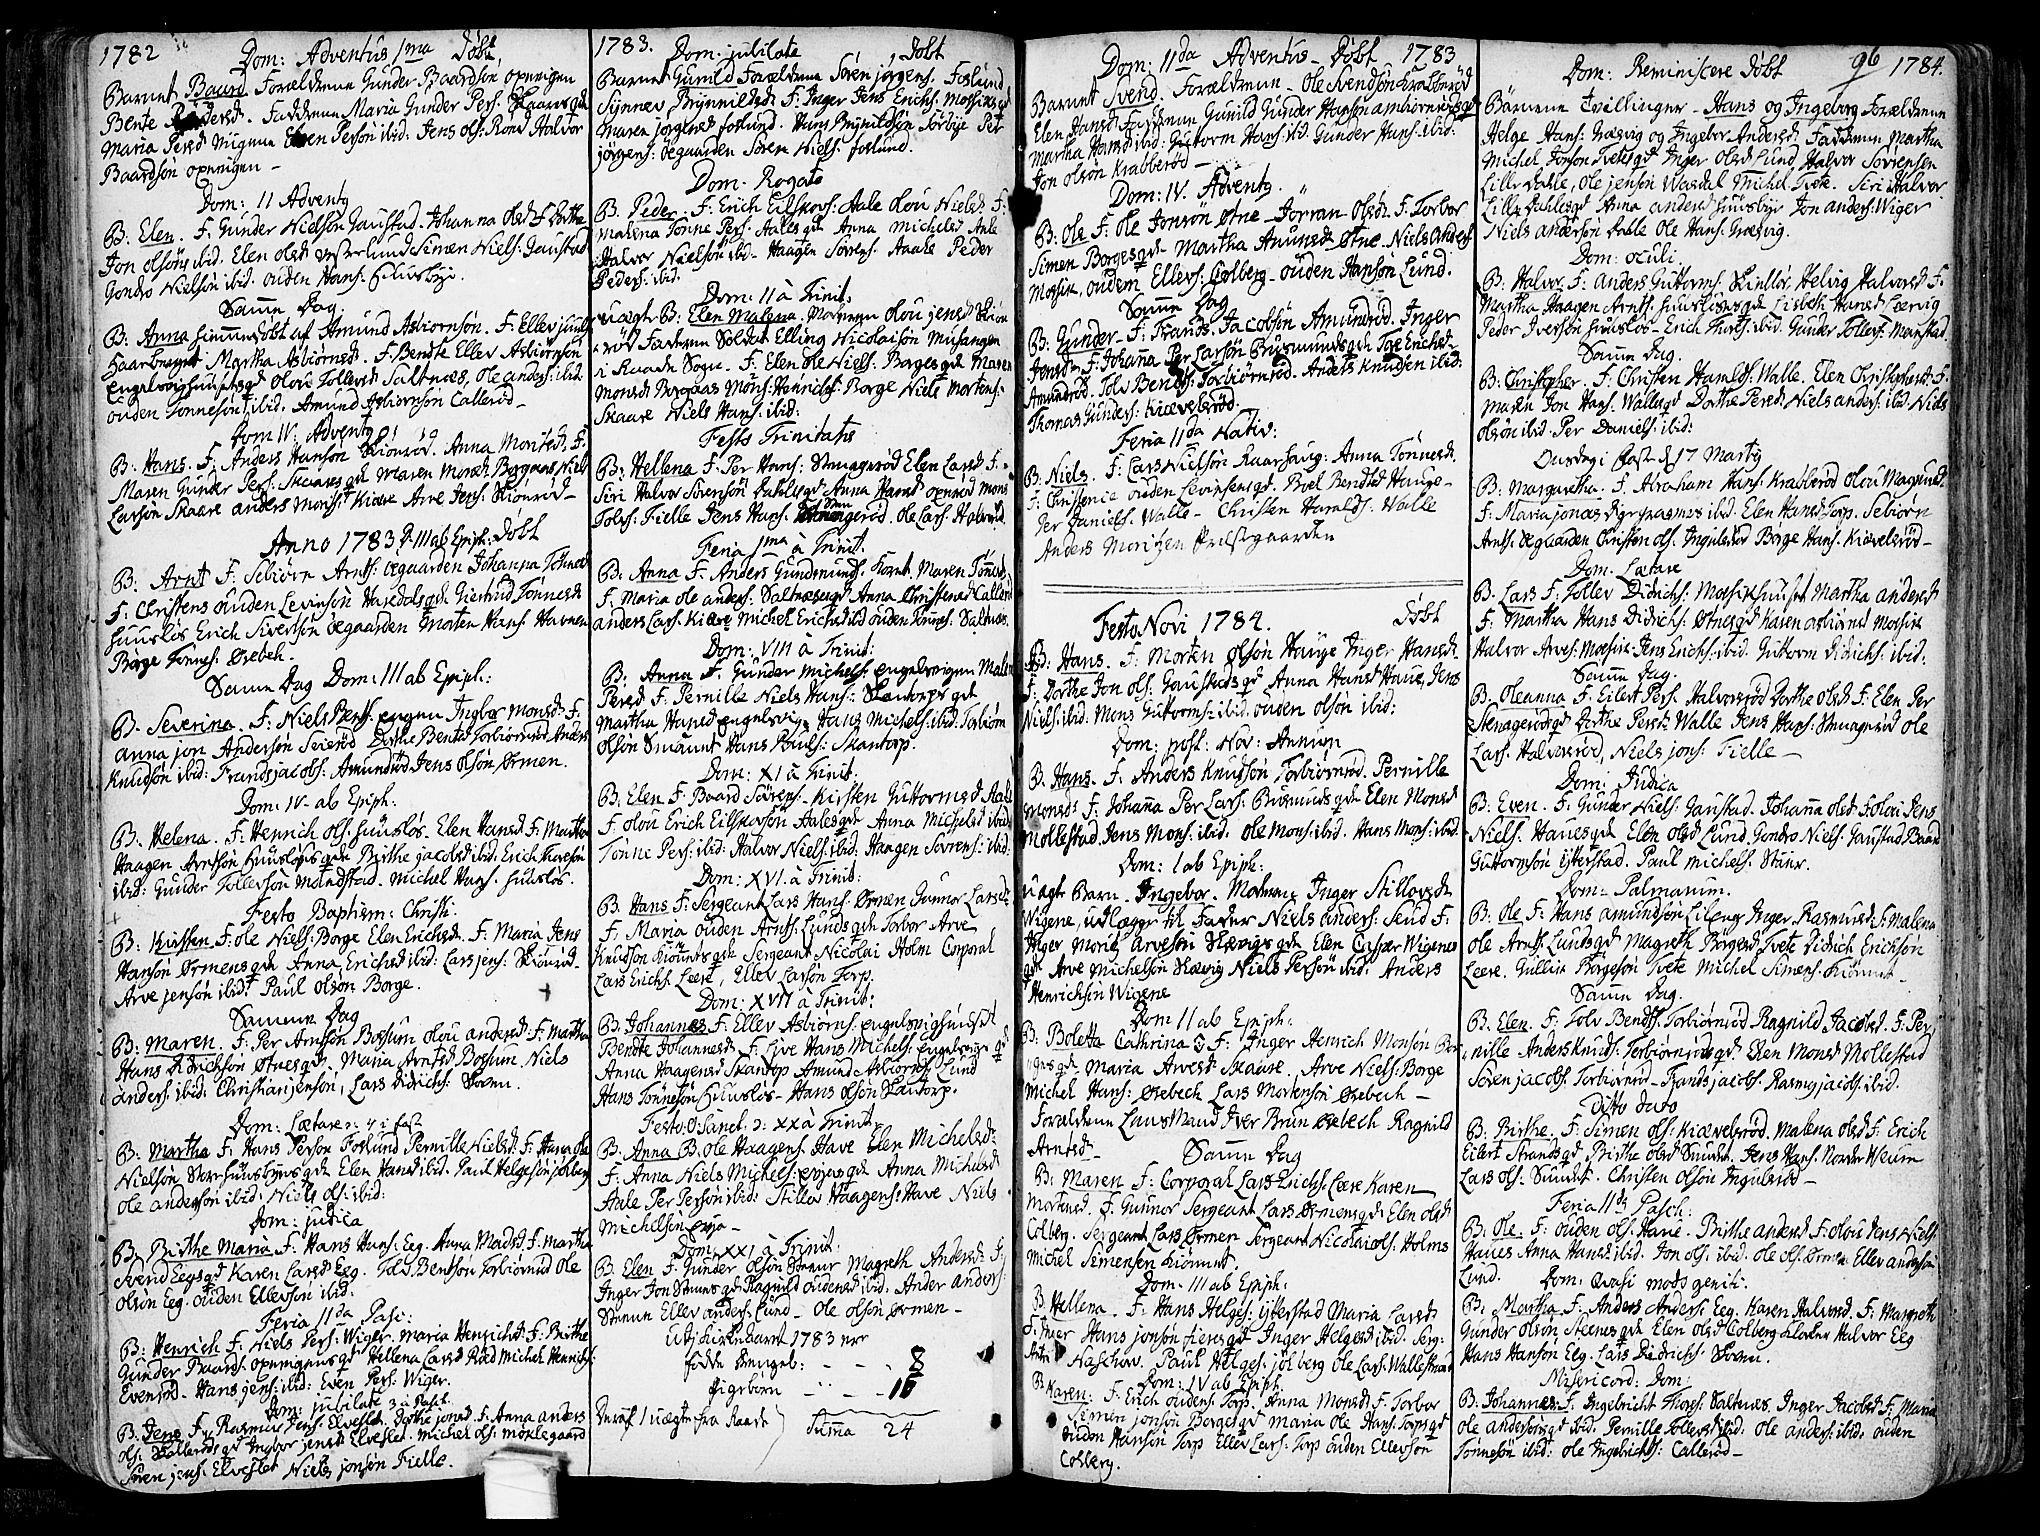 1782 Dom: Adventus 1ma Døbt
Barnet Baard Forældrene Gunder Baardsøn openrigen
Bente Fadderne Maria Gunder Pers: Skaares gd
Maria Persd Mignun Even Persøn ibid. Jens ols: Roed Halvor
Baardsøn openrigen –
Dom: 11 Adventq
B. Elen. F. Gunder Nielsøn Gaustad. Johanna olsd F. Berthe
Jon olsøns ibid. Elen olsd Simen Niels: Gaustad
Gondro Nielsøn ibid. ouden Hans:
Samme Dag
B. Anna himmedøbt af Amund Asbiørnsøn. F. Ellev
Martha Asbiørnsd. F. Bendte Ellev Asbiørnsøn
olou Tollevsd Saltnæs, ole anders: ibid.
ouden Tønnesøn ibid. Amund Asbiørnsøn Callerød –
Dom IV. Adventq
B. Hans. F. Anders Hansøn Kiønrød. Anna Moritsd. F.
Maren Gunder Pers: Skaares gd Maren Monsd Borgaas Niels
Larsøn Skaare anders Monss: Kiære Arve Jens: Kiønrød –
Anno 1783 D. III ab Epiph: Døbt
B. Arnt F. Sebiørn Arnts: Øegaarden Johanna Tønnesd
F. Christens ouden Levinsøn gd Giertrud Tønnesd
Huusløs Erich Sivertsøn Øegaarden Morten Hans: Havnen
Børge Tønnes: Ørebek.
Samme Dag Dom: III ab Epiph:
B. Severina. F. Niels Bents: engen Ingebor Monsd F.
Anna jon Andersøn Seierød Dorthe Bente Torbiørnrød Anders
Knudsøn ibid: Frands jacobs: Amundrød Jens olsøn Ørmen.
Dom: IV ab Epiph:
B. Helena. F. Henrich ols: huusløs. Elen Hansd F. Martha
Haagen Arntsøn Huusløs gd Birthe jacobsd ibid. Erich Thoresøn
ibid: Gunder Tollevsøn Mandstad. Michel Hans: huusløs.
Festo Baptism: Christi.
B. Kirsten F. ole Niels: Borge Elen Erichsd. F. Maria Jens
Hansøn Ørmens gd Anna Erichsd ibid: Lars jens: Skiønrød.
Arve jensøn ibid: Paul olsøn Borge.
Samme Dag
B. Maren. F. Per Arntsøn Bossum olou andersd. F. Martha
Hans Didrichsøn Øtnes gd. Maria Arntsd Bossum Niels
anders: ibid. Christian jensøn, Lars Didrichs: Soen.
Dom: Lætare
B. Martha F. Hans Persøn Foslund Pernille Nielsd. F. Hans ole
Nielsøn gd Elen Hansd ibid. Paul Helgesøn
ole andersøn ibid. Niels ols: ibid:
Dom: judica
B. Birthe Maria F. Hans Hans: Eeg. Anna Madsd F. Martha
Svend Eegs gd Karen Larsd Eeg. Tolv Bentsøn Torbiørnrød Ole
olsøn Eeg. ouden Ellevsøn ibid:
Feria 11da Pasc:
B: Henrich F. Niels Pers: Wiger. Maria Henrichsd. F: Birthe
Gunder Baards: openrigens gd Hellena Larsd Rød Michel Henrichs:
Evensrød – Hans jens: ibid: Even Pers: Wiger.
Dom: jubilate 3 à Pasc.
B. Jens F. Rasmus Jens: Elvestet. Dorthe jonsd F. Anna anders
ols: Ingbor jensd Elvestet. Michel ols: Møklegaard
Søren jens: Elvestet Niels jonsøn Fielle.
1783. Dom. jubilate Døbt
Barnet Gunild Forældrene Søren jørgens. Foslund
Synnev Brynnildsd F: Inger Jens Erichs: gd
Maren jørgensd foslund. Hans Brynildsøn Sørbye Per
jørgens: Øegaarden Søren Niels: foslund.
Dom. Rogate
B. Peder F: Erich Eilskovs: Aale olou Nielsd F:
Malena Tønne Pers: Aales gd Anna Michelsd Aale
Halvor Nielsøn ibid. Haagen Sørens: Aaale Peder
Peders: ibid.
Dom: 11 à Trinit:
uægte B: Elen Malena. Moderen olou jensd
Faderen Soldat Elling Nicolaisøn Musangen
i Raade Sogn. F: Elen ole Niels: Borges gd Maren
Monsd Borgaas Mons: Henrichs: Borge Niels Mortens:
Skaare Niels Hans: ibid:
Festo Trinitatis
B: Hellena F. Per Hans: Smaagerød Elen Larsd F.
Siri Halvor Sørensøn Dahles gd Anna Hansd openrød Mons
Tolvs: Fielle Jens Hans: ole Lars: Halvorsrød.
Feria 1ma à Trinit.
B: Anna F. Anders Gundmunds: Maren Tønnesd
F. Maria ole anders: Saltnæs gd Anna Christensd Callerød
anders Lars: Kiære Michel Erichs ibid ouden Tønnes: Saltnæs.
Dom: VIII à Trinit:
B. Anna F. Gunder Michels: engelsvigen Malen
Persd F. Pernille Niels Hans: Skantorps gd
Martha Hansd engelsvig. Hans Michels: ibid. Torbiørn
olsøn Smaunt Hans Pouls: Skantorp.
Dom: XI à Trinit:
B. Elen F. Baard Sørens: Kirsten Guttormsd Aale
F. olou Erich Eilskovsøn Aales gd Anna Michelsd ibid
Tønne Pers: ibid: Halvor Niels: ibid. Haagen Sørens: ibid.
Dom: XVI. à Trinit:
B. Hans F: Sergeant Lars Hans: Ørmen Gunnor Larsd
F. Maria ouden Arnts: Lunds gd Torbor Arve
Knudsøn gd Sergeant Nicolai Holm Corporal
Lars Erichs: Leere, Ellev Larsøn Torp.
Dom: XVII à Trinit:
B: Johannes F: Ellev Asbiørns: engelsvighuuset
Bendte Johannesd F: Live Hans Michels: engelsvig gd
Anna Haagensd Skantop Amund Asbiørns: Lund
Hans Tønnesøn Huusløs – Hans olsøn Skantorp.
Festo: O: Sanct. o: XX à Trinit:
B: Anna B. ole Haagens: Have Elen Michelsd:
F. Anna Niels Michels: gd Anna Michelsd
Aale Per Persøn ibid: Stillev Haagens: Have Niels
Michelsøn
Dom: XXI à Trinit:
B. Elen F. Gunder olsøn Steener Magreth Andersd F.
Inger Jon gd Ragnild oudensd ibid. Anders anders:
Steenen Ellev anders: Lund – ole olsøn Ørmen –
Udj Kirkeaaret 1783 ere
fødde Drengeb: – – – 8
Pigebørn – – – 16
Deraf 1 uægte fra Raade Suma 24
Dom: 11da Adventus – Døbt 1783
Barnet Svend. Forældrene – Ole Svendsøn Krabberød
Elen Hansd Fadderne Gunild Gunder Hansøn gd
Martha Hansd ibid: Guttorm Hans: ibid. Gunder Hans: ibid:
Jon olsøn Krabberød –
Dom: IV. Adventq.
B: Ole F: ole Jonsøn Øtne – Jorran olsd. F. Torbor
Simen Borges gd Martha Amundsd Øtne. Niels Anders:
Mossik, ouden Ellevs: Colberg – ouden Hansøn Lund.
Samme Dag
B: Gunder – F: Frands Jacobsøn Amundrød. Inger
Jensd F. Johanna Per Larsøn Brusmunds gd Tore Erichsd
Amundrød. Tolv Bends: Torbiørnrød. Anders Knudsen ibid:
Thomas Gunders: Kiævelsrød.
Feria 11da Nativ:
B. Niels. F: Lars Nielsøn Raarhaug. Anna Tønnesd.
F. Christence ouden Levinsens gd. Boel Bendtsd Hauge –
Per Daniels. Walle – Christen Haralds. Walle
Anders Moritzen Prestgaarden
Festo Novi 1784. Døbt
B: Hans. F: Morten olsøn Hauge Inger Hansd.
F: Dorthe Jon ols: Gaustads gd Anna Hansd Haue, Jens
Niels: ibid. Mons Guttorms: ibid. ouden olsøn ibid:
Dom: post: Nov: Annum
B. Hans. F: Anders Knudsøn Torbiørnrød. Pernille
Monsd. F. Johanna Per Lars: Brusmunds gd Elen Monsd
Mollestad Jens Mons: ibid. Ole Mons: ibid. Hans Mons: ibid.
Dom: 1 ab Epiph:
uægte Barn. Ingebor. Moderen Inger Stillovsd
Wigene, udlægger til Fader Niels anders: F.
Inger Morits Arvesøn Slævigs gd. Elen Casper Wigenes
gd Arve Michelsøn Slævig Niels Persøn ibid. Anders
Henrichsøn Wigene
Dom 11 ab Epiph:
B: Boletta Cathrina F: Inger Henrich Monsøn Bor=
ges gd Maria Arvesd Skaare. Arve Niels: Borge
Michel Hans: Ørebech Lars Mortensøn Ørebech –
Foreldrene Laursmand Iver Brun Ørebech Ragnild
Arnesd –
Samme Dag
B: Maren F: Corporal Lars Erichs: Leere Karen
Mortensd. F. Gunnor Sergeant Lars Ørmens gd: Elen olsd
Colberg. Sergeant Lars Ørmen Sergeant Nicolai ols: Holms
Michel Simensen Kiønnet.
Dom. III ab Epiph:
B. Hellena. F: Hans Helges: ijsterstad Maria Larsd
F: Inger Hans jonsøn gd Inger Helgesd ibid. Serg:
Naschow. Paul Helges: jølberg ole Lars: Walle
Dom: IV ab Epiph:
B. Karen: F: Erich oudens: Torp Anna Monsd. F: Torbor
Simen jonsøn Borges gd Maria ole Hans: Torps gd
ouden Hansøn Torp Ellev Lars: Torp ouden Ellevsøn
Colberg.
Dom: Reminiscere Døbt 96 1784.
Børnene tvillinger – Hans og Ingeborg Forældrene
Helge Hans: Græsvig og Ingebor Andersd. Fadderne Martha
Michel Jonsøn Tvetes gd Inger olsd Lund Halvor Sørensen
Lille Dahle, Ole jensøn Wardal Michel Tvete. Siri Halvor
Lille Dahles gd Anna andersd huusbye Jon anders: Wiger
Niels andersøn Dahle ole Hans. Græsvig.
Dom: oculi.
B. Halvor. F: Anders Guttorms: Helvig Halvorsd F.
Martha Haagen Arnts: huusløs gd Lisbeth Hansd Lervig
Peder Iversøn huusløs – Erich Thores: ibid. Gunder Tollevs: Manstad.
Samme Dag.
B. Christopher. F: Christen Haralds: Walle. Elen Christophersd F.
Maren Jon Hans: Walles gd Dorthe Persd. Niels anders: ibid Niels
olsøn ibid. Per Daniels ibid:
Onsdag i Fast: d 17 Martij
B: Margaretha. F: Abraham Hans: Krabberød olou Magnusd.
F. Maria jonas ibid. Elen Hansd Torp. Sebiørn
Arnts: Øegaarden Christen ols: Ingulsrød Borge Hans: Kiævelsrød –
Dom. Lætare
B: Lars F. Tollev Didrichs: Mossikhuuset Martha andersd
F. Martha Hans Didrichs: Øtnes gd Karen asbiørnsd Mossik
Halvor Arves: Mossik. Jens Erichs: ibid. Guttorm Didrichs: ibid:
Samme Dag.
B: Oleanna F: Eilert Pers: Halvorsrød Dorthe olsd F: Elen Per
gd Dorthe Persd Walle Jens Hans: Smaagerød ole
Lars: Halvorsrød, Niels jons: Fielle –
Dom: Judica
B: Even. F: Gunder Niels: Gaustad. Johanna olsd F. olou Jens
Niels. Haues gd Elen olsd Lund. Gondro Niels. Gaustad Baard
Guttormsøn ijsterstad. Paul Michels: Steener.
Dom: Palmarum.
B: Ole F: Hans Amundsøn Lileng. Inger Rasmusd. F. Malena
ole Arnts: Lunds gd Magreth Borgesd Tvete. Didrich Erichsøn
Leere. Gullich Borgesøn Tvete Michel Simens: Kiønnet –
Samme Dag.
B: Elen. F: Tolv Bendts: Torbiørnrød Ragnild Jacobsd. F. Per=
nille Anders Knuds: Torbiørnrøds gd. Elen Monsd Mollestad
Søren jacobs: Torbiørnrød – Frands jacobs: Rasmus jacobs: ibid.
Ditto dato
B: Birthe. F: Simen ols: Kiævelsrød. Malena olsd F: Erich
Eilert Strands gd Birthe olsd Jens Hans: Norder Weum
Lars ols: Sundet. Christen olsøn Ingulsrød –
Feria 11da Pasch:
B: Ole: F: ouden ols: Haue. Birthe andersd F: olou Jens Niels:
Haues Anna Hansd ibid. Jon ols: ibid. ole ols: Ørmen Ellev andersøn
Lund. Dom: Qvasi modo geniti.
B: Martha F. Anders Anders: Eeg. Karen Halvorsd F: Margreth
Gunder olsøn Steenes gd Elen olsd Colberg Klokker Halvor Eeg
Hans Hansøn Eeg. Lars Didrichs: Soen.
Misericord: Dom:
B: Johannes F: Ingebricht Thores: Saltnæs. Inger Jacobsd F. Maria
ole andersøns gd ibid. Pernille Tollevsd ibid. ole anders: ibid. ouden
Tønnesøn ibid: ole Ingebrichts: Callerød –